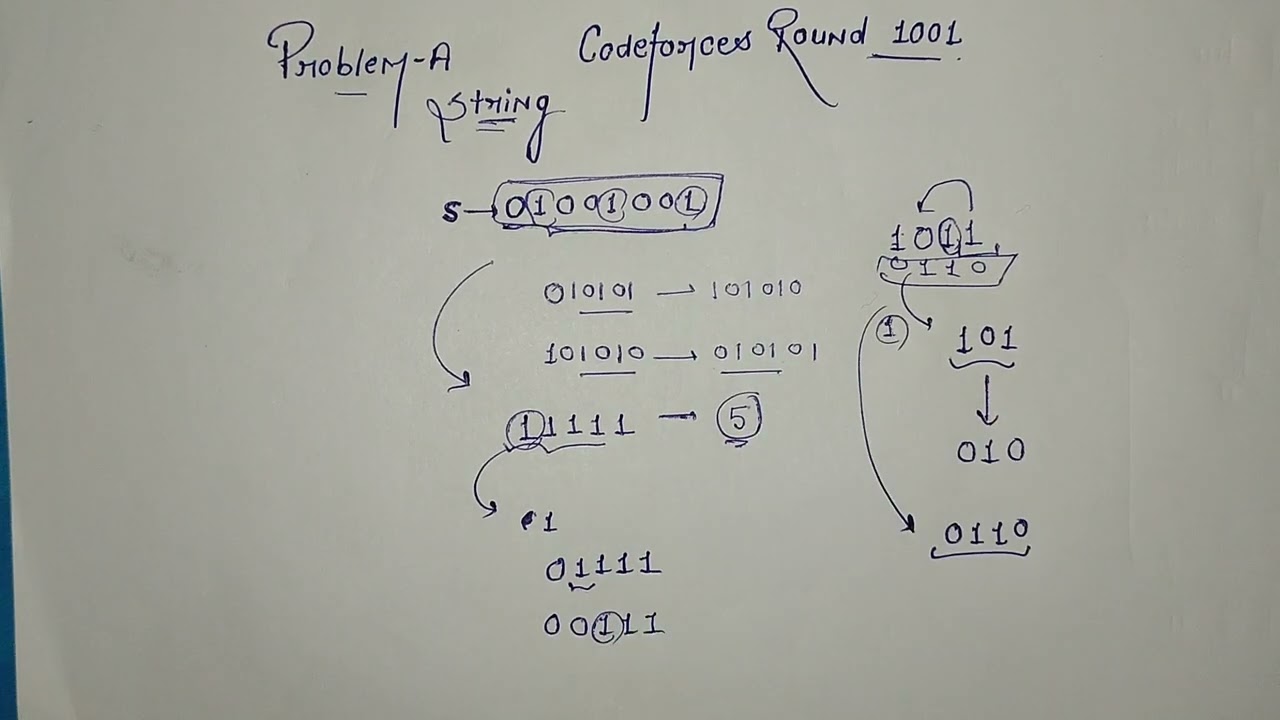 Problem-A
Codeforces Round 1001.
String
S — 01001001
010101 → 101010
101010 → 010101
11111 → 5
1
01111
00111
1011,
0110
1
101
010
0110